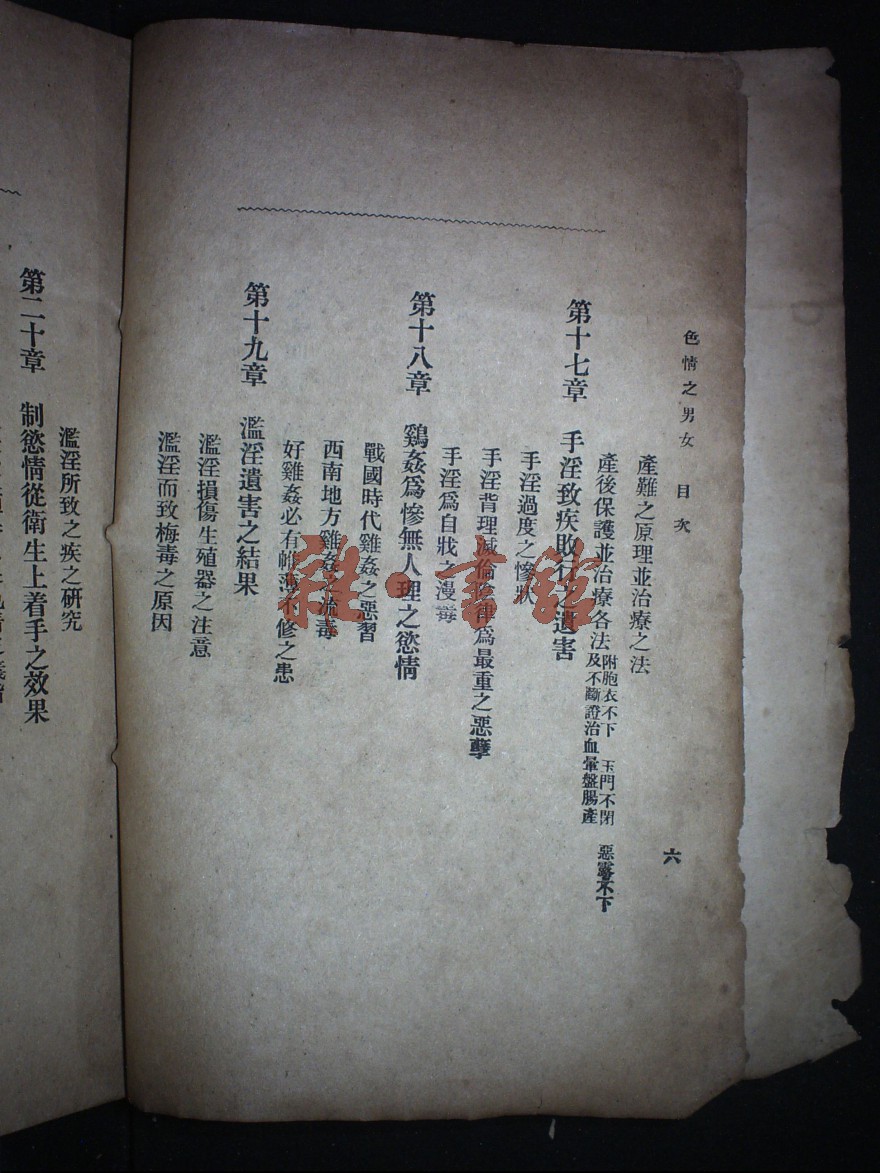 色情之男女 目次
六
產難之原理並治療之法
產後保護並治療各法
附胞衣不下 玉門不閉 惡露不下
及不斷證治血暈盤腸產
第十七章 手淫致疾敗行之遺害
手淫過度之慘狀
手淫背理滅倫陰律爲最重之惡孽
手淫爲自戕之漫毒
第十八章 鷄姦爲慘無人理之慾情
戰國時代雞姦之惡習
西南地方雞姦之流毒
好雞姦必有帷薄不修之患
第十九章 濫淫遺害之結果
濫淫損傷生殖器之注意
濫淫而致梅毒之原因
濫淫所致之疾之研究
第二十章 制慾情從衛生上着手之效果
雅·書館